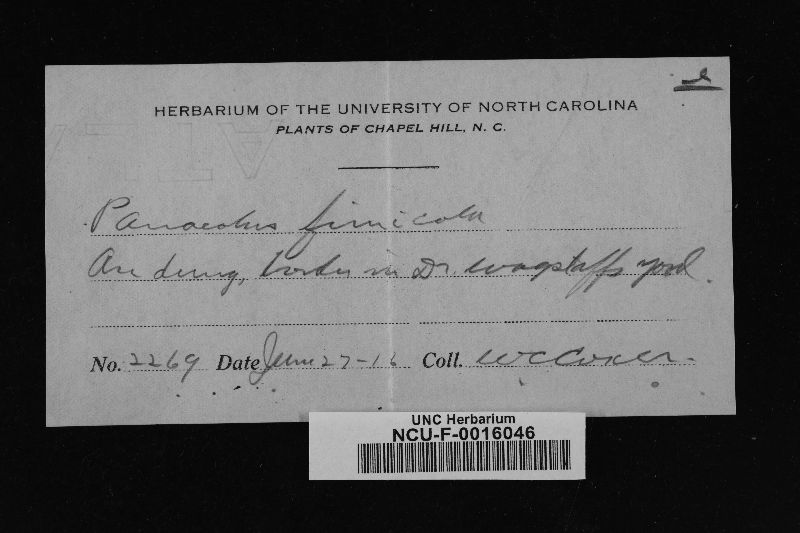 HERBARIUM OF THE UNIVERSITY OF NORTH CAROLINA
PLANTS OF CHAPEL HILL, N. C.
Panaeolus fimicola
On dung, border in Dr. Wagstaffs yard.
No. 2269 Date June 27-16 Coll. W C Coker.
UNC Herbarium
NCU-F-0016046